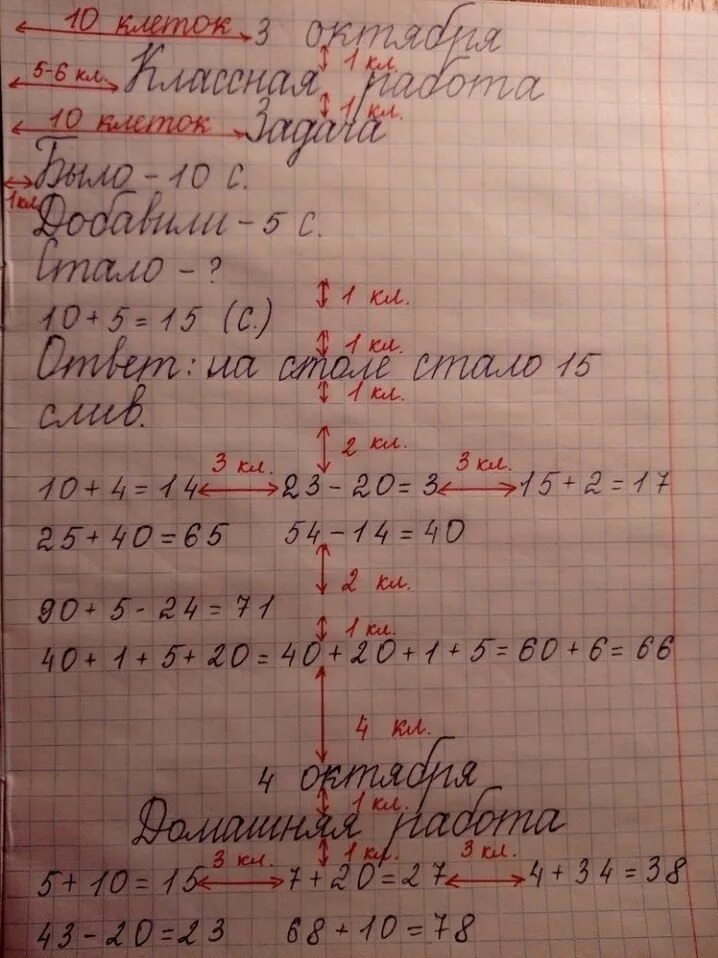 10 клеток 3 октября
1 кл.
5-6 кл. Классная работа
1 кл.
10 клеток Задача
Было - 10 с.
1кл
Добавили - 5 с.
Стало - ?
1 кл.
10 + 5 = 15 (с.)
1 кл.
Ответ: на столе стало 15
1 кл.
слив.
2 кл.
3 кл. 3 кл.
10 + 4 = 14 23 - 20 = 3 15 + 2 = 17
25 + 40 = 65 54 - 14 = 40
2 кл.
90 + 5 - 24 = 71
1 кл.
40 + 1 + 5 + 20 = 40 + 20 + 1 + 5 = 60 + 6 = 66
4 кл.
4 октября
1 кл.
Домашняя работа
3 кл. 1 кл. 3 кл.
5 + 10 = 15 7 + 20 = 27 4 + 34 = 38
43 - 20 = 23 68 + 10 = 78